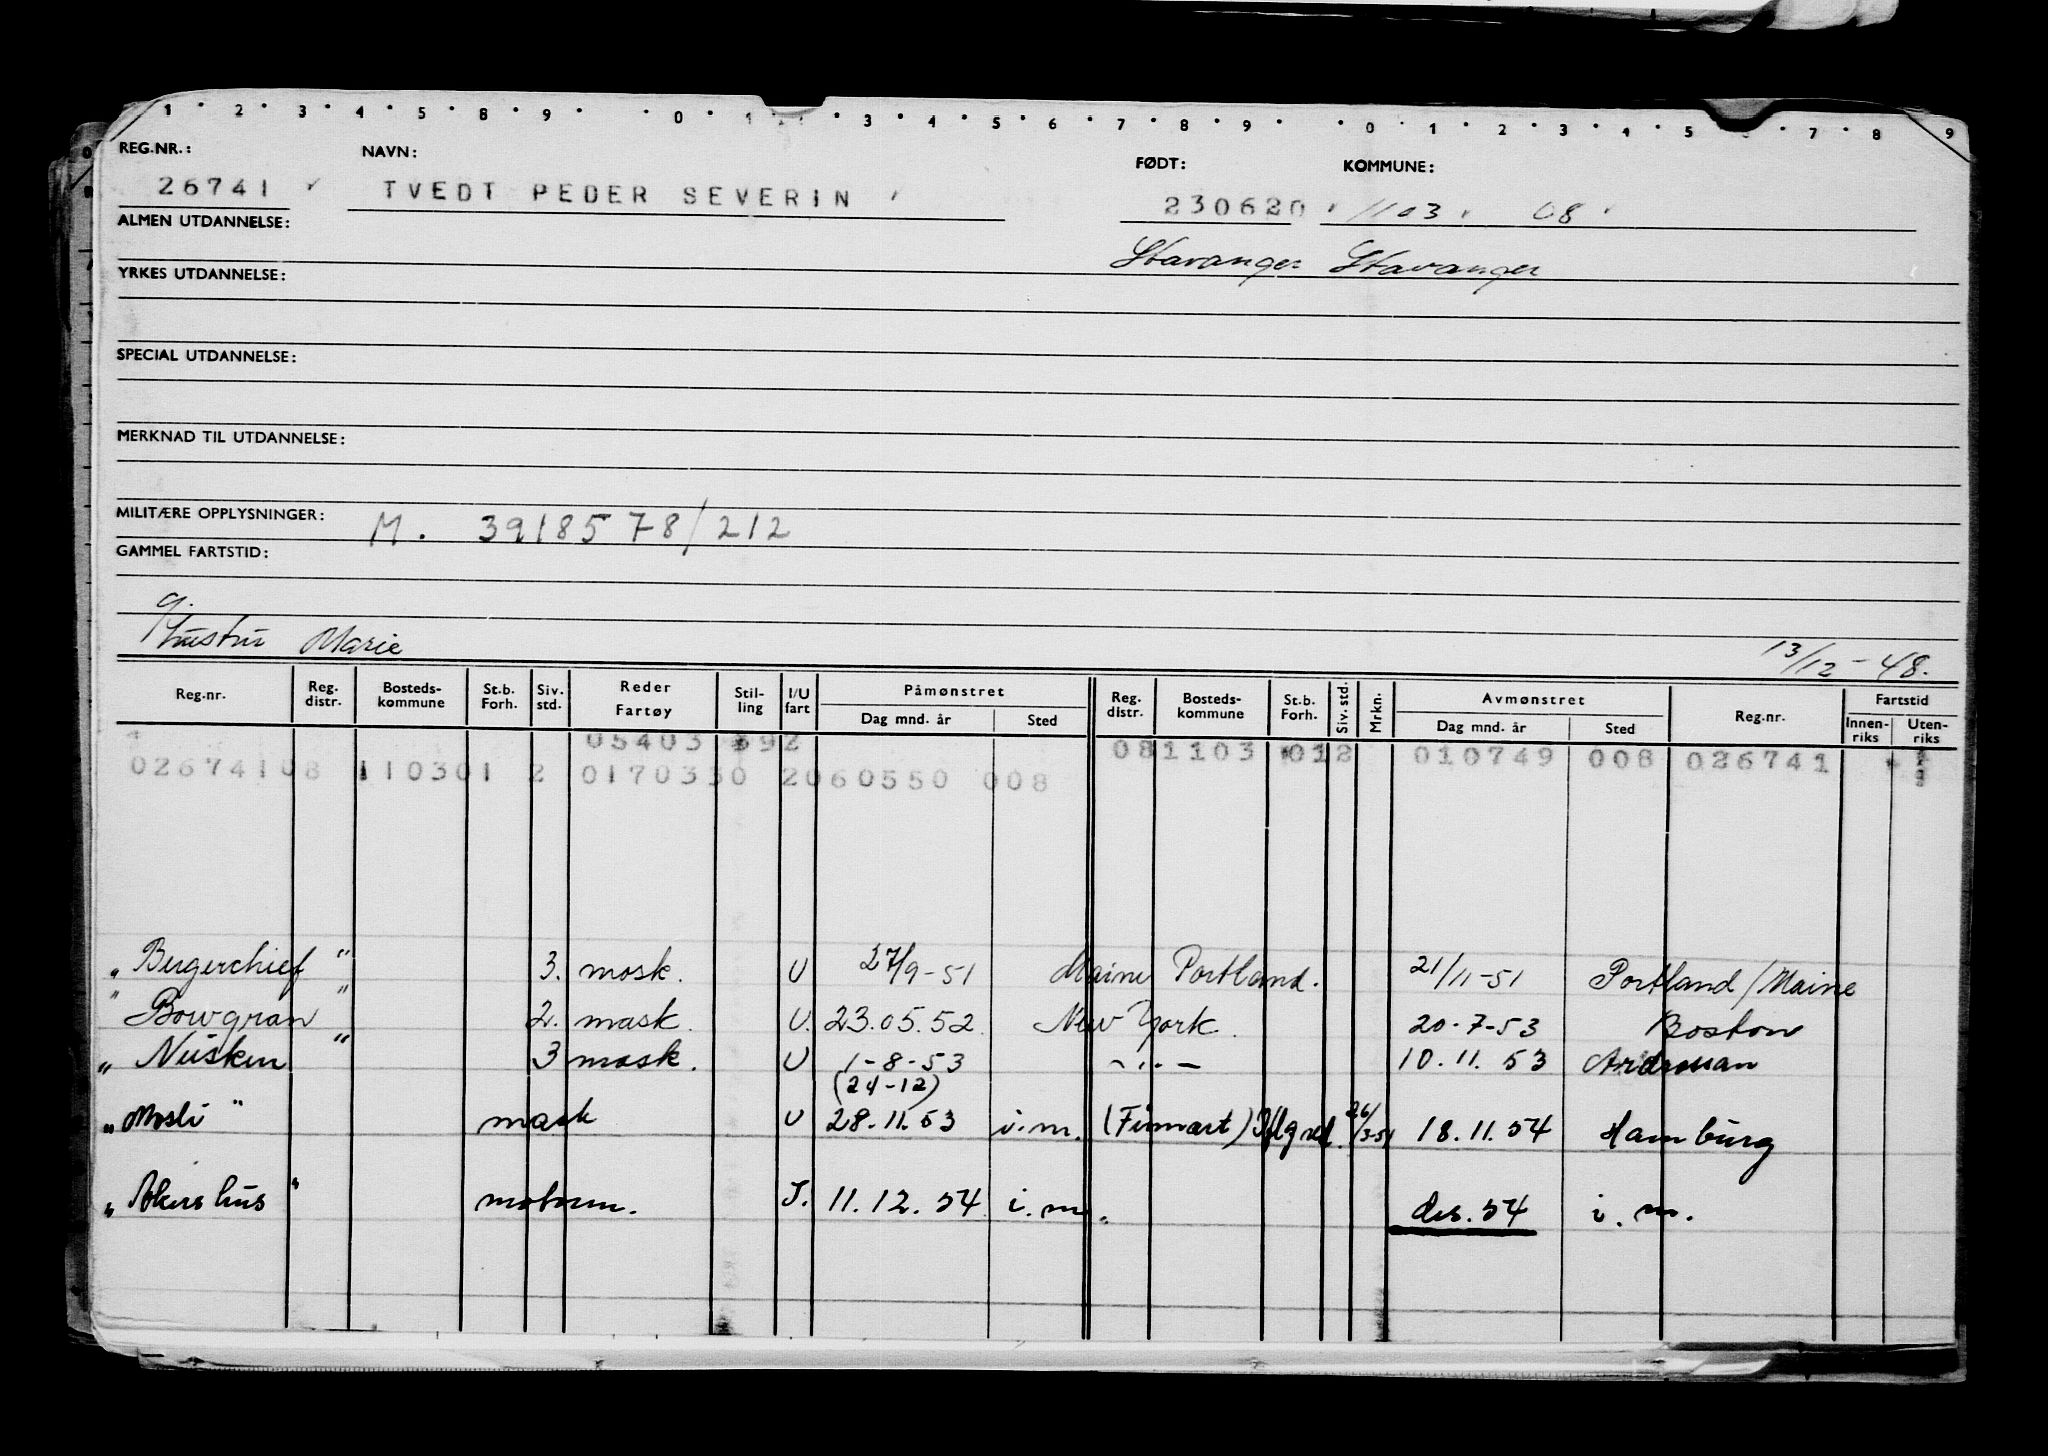 1 2 3 4 5 8 9 0 1 3 4 5 6 7 8 9 0 1 2 3 4 5 7 8 9
REG.NR.: NAVN: FØDT: KOMMUNE:
26741 TVEDT PEDER SEVERIN 230620 1103 08
ALMEN UTDANNELSE: Stavanger Stavanger
YRKES UTDANNELSE:
SPECIAL UTDANNELSE:
MERKNAD TIL UTDANNELSE:
MILITÆRE OPPLYSNINGER: M. 3918578/212
GAMMEL FARTSTID:
g.
hustru Marie 13/12-48.
Reg.nr. Reg. distr. Bosteds- kommune St.b. Forh. Siv. std. Reder Fartøy Stil- ling I/U fart Påmønstret Dag mnd. år Sted Reg. distr. Bosteds- kommune St.b. Forh. Siv. std. Mrkn. Avmønstret Dag mnd. år Sted Reg.nr. Fartstid Innen- riks Uten- riks
05403 892 081103 012 010749 008 026741
02674108 110301 2 0170330 2060550 008
"Bergerchief" 3. mask. U 27/9-51 Maine Portland. 21/11-51 Portland/Maine
"Bowgran" 2. mask. U. 23.05.52 New York. 20-7-53 Boston
"Nusken" 3 mask. U 1-8-53 -"- 10.11.53 Ardrossan
(24-12)
"Mosli" mask U 28.11.53 i.m. (Finnart) 26/3-54 18.11.54 Hamburg
"Akershus" motorm. I. 11.12.54 i.m. des.54 i.m.